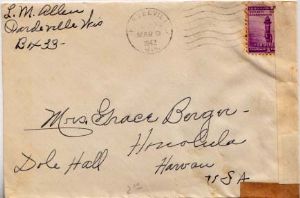 L. M. Allen
Pardeeville Wis
Box 33-
MAR 9
1943
WIS.
Mrs. Grace Berger-
Honolulu
Dole Hall Hawaii
USA